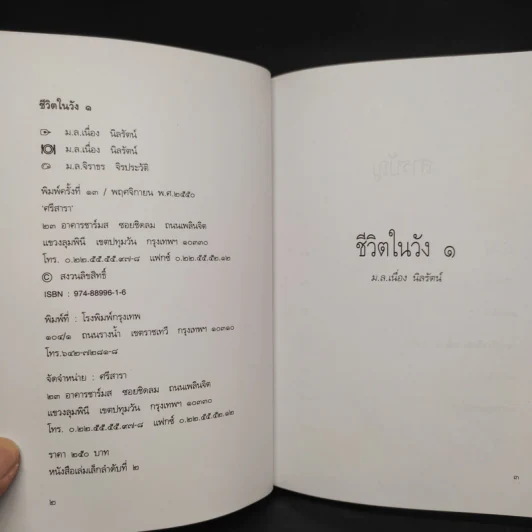 ชีวิตในวัง ๑
ม.ล.เนื่อง นิลรัตน์
ม.ล.เนื่อง นิลรัตน์
ม.ล.จิราธร จิรประวัติ
พิมพ์ครั้งที่ ๑๓ / พฤศจิกายน พ.ศ.๒๕๕๐
'ศรีสารา'
๒๓ อาคารชาร์มส ซอยชิดลม ถนนเพลินจิต
แขวงลุมพินี เขตปทุมวัน กรุงเทพฯ ๑๐๓๓๐
โทร. ๐.๒๒.๕๕.๕๕.๙๗-๘ แฟกซ์ ๐.๒๒.๕๕.๕๒.๑๒
© สงวนลิขสิทธิ์
ISBN : 974-88996-1-6
พิมพ์ที่ : โรงพิมพ์กรุงเทพ
๑๐๙/๑ ถนนรางน้ำ เขตราชเทวี กรุงเทพฯ ๑๐๓๑๐
โทร.๖๔๒-๗๒๘๑-๘
จัดจำหน่าย : ศรีสารา
๒๓ อาคารชาร์มส ซอยชิดลม ถนนเพลินจิต
แขวงลุมพินี เขตปทุมวัน กรุงเทพฯ ๑๐๓๓๐
โทร. ๐.๒๒.๕๕.๕๕.๙๗-๘ แฟกซ์ ๐.๒๒.๕๕.๕๒.๑๒
ราคา ๒๕๐ บาท
หนังสือเล่มเล็กลำดับที่ ๒
๒
ชีวิตในวัง ๑
ม.ล.เนื่อง นิลรัตน์
๓